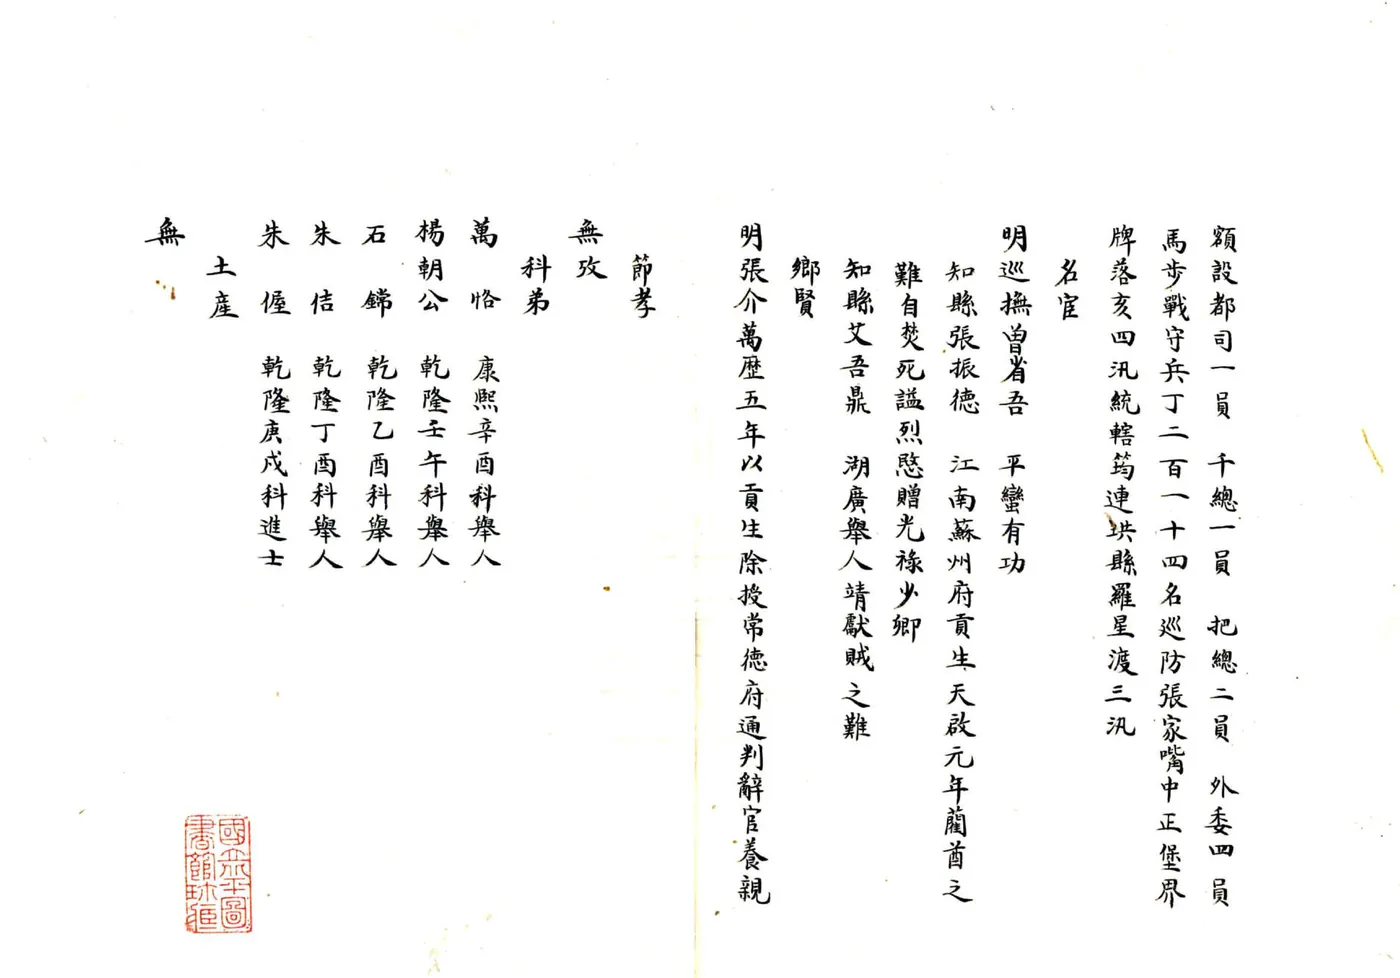 額設都司一員 千總一員 把總二員 外委四員
馬步戰守兵丁二百一十四名巡防張家嘴中正堡界
牌落亥四汛統轄筠連珙縣羅星渡三汛
名宦
明巡撫曽省吾 平蠻有功
知縣張振德 江南蘇州府貢生天啟元年藺酋之
難自焚死謚烈愍贈光祿少卿
知縣艾吾鼎 湖廣舉人靖獻賊之難
鄉賢
明張介萬歷五年以貢生除授常德府通判辭官養親
節孝
無攷
科弟
萬恪 康熙辛酉科舉人
楊朝公 乾隆壬午科舉人
石鐺 乾隆乙酉科舉人
朱佶 乾隆丁酉科舉人
朱偓 乾隆庚戌科進士
土産
無
國立北平圖
書館珍藏